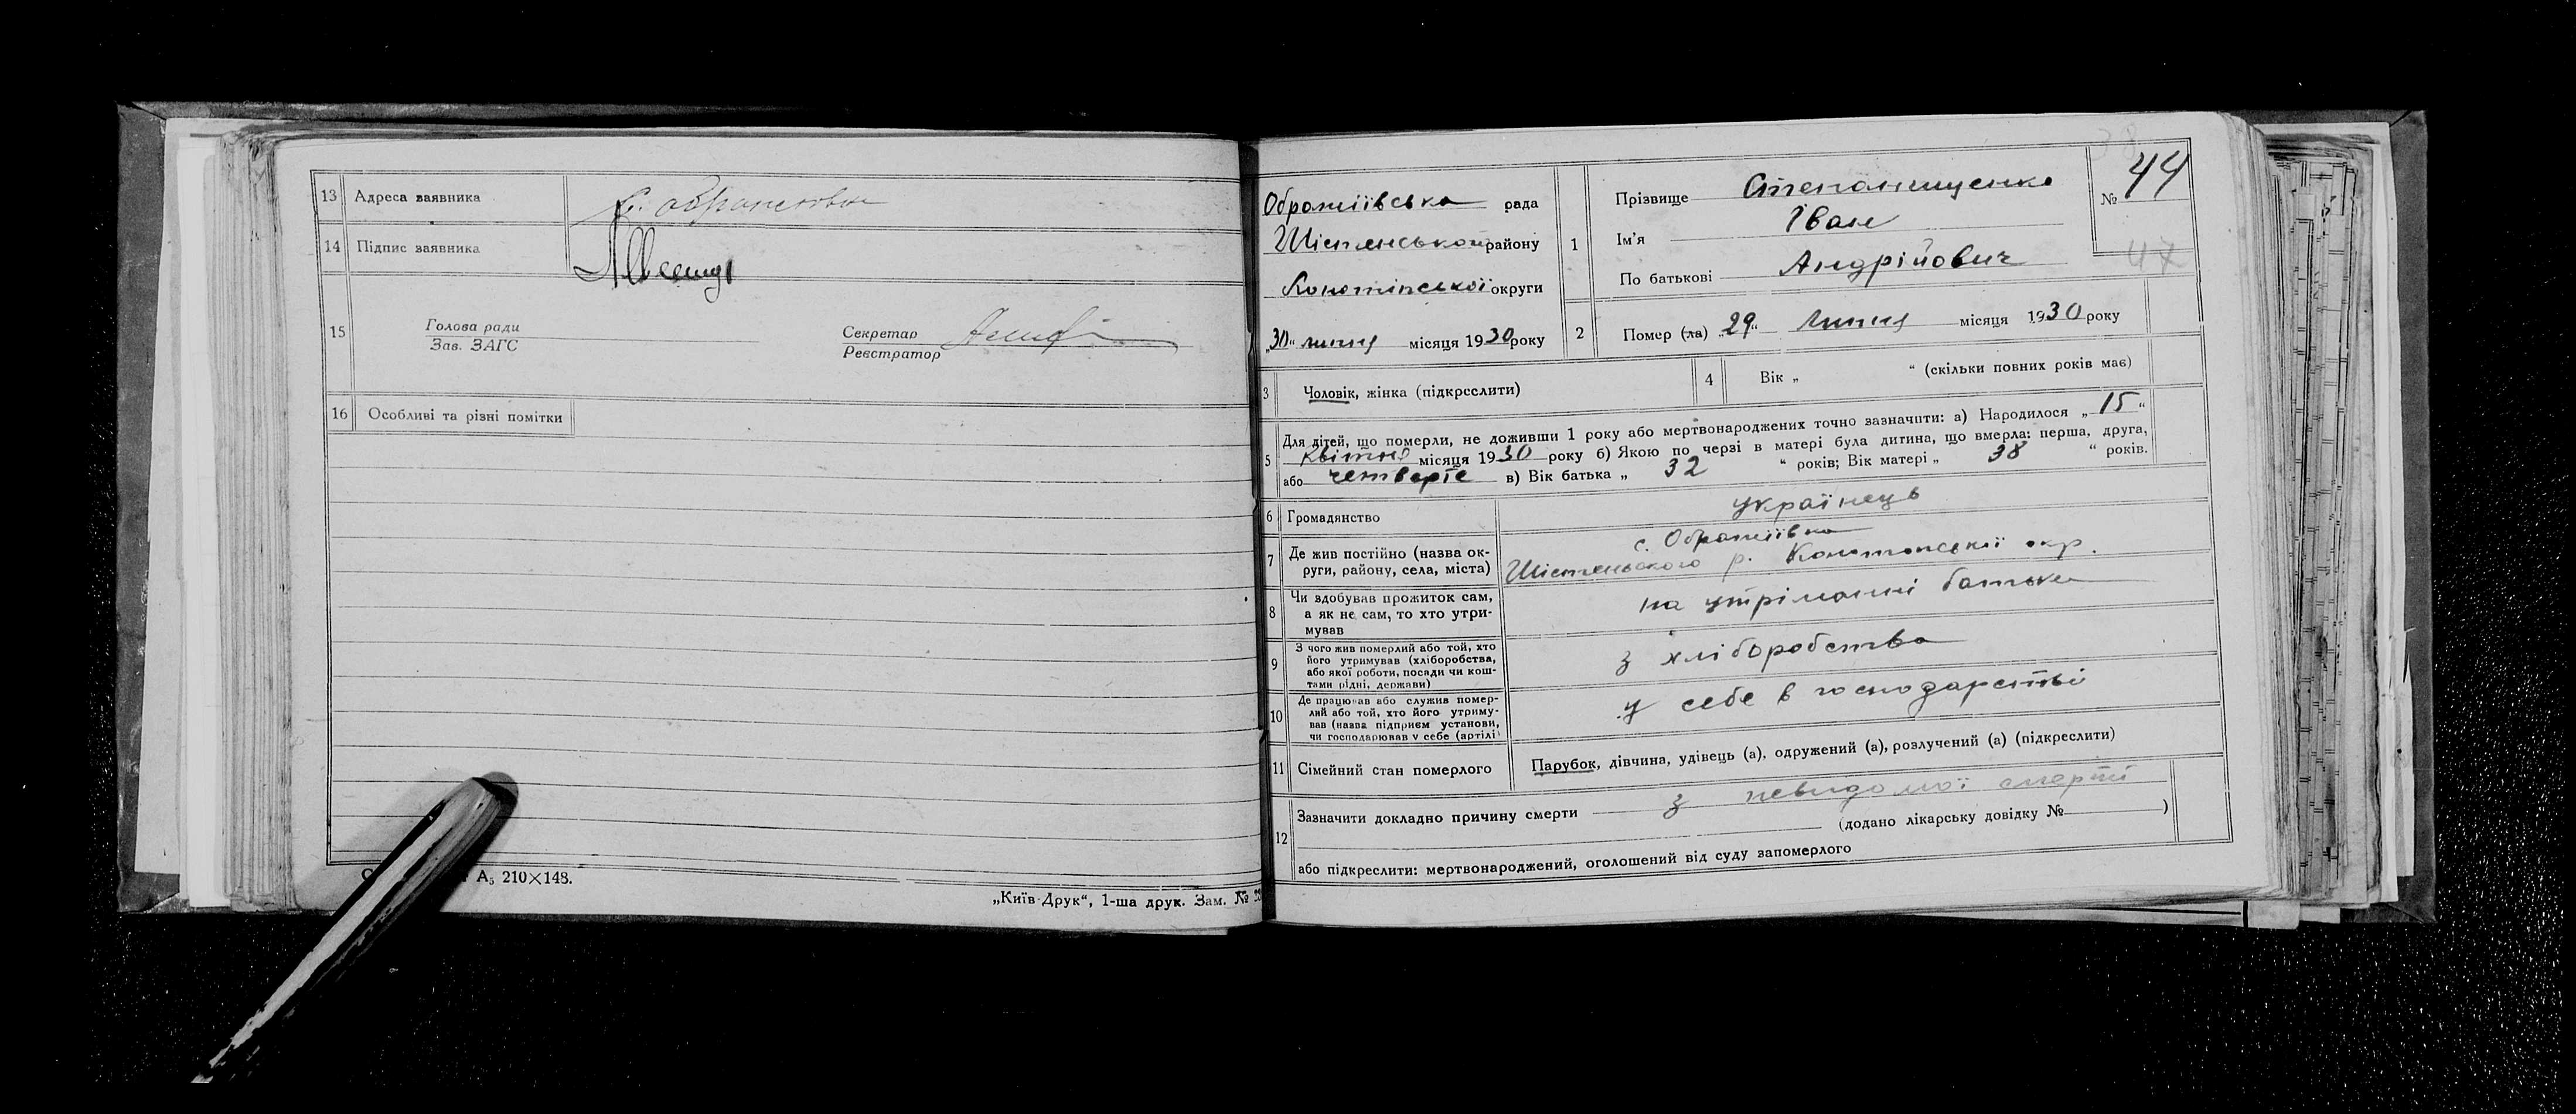 13 Адреса заявника
14 Підпис заявника
15 Голова ради
Зав. ЗАГС
Секретар
Реєстратор
16 Особливі та різні помітки
А5 210×148.
„Київ-Друк“, 1-ша друк. Зам. №
Обтоліївська рада
району
Конотіпської округи
„30“ липня місяця 1930 року
1 Прізвище Степанищенко
Ім'я Іван
По батькові Андрійович
№ 44
47
2 Помер (ла) „29“ липня місяця 1930 року
3 Чоловік, жінка (підкреслити)
4 Вік „ “ (скільки повних років має)
5 Для дітей, що померли, не доживши 1 року або мертвонароджених точно зазначити: а) Народилося „15“
квітня місяця 1930 року б) Якою по черзі в матері була дитина, що вмерла: перша, друга,
або четверте в) Вік батька „ 32 “ років; Вік матері „ 38 “ років.
6 Громадянство українець
7 Де жив постійно (назва округи, району, села, міста)
с.
р. Конотопської окр.
8 Чи здобував прожиток сам, а як не сам, то хто утримував
на утріманні батька
9 З чого жив померлий або той, хто його утримував (хліборобства, або якої роботи, посади чи коштами рідні, держави)
з хліборобства
10 Де працював або служив померлий або той, хто його утримував (назва підприєм установи, чи господарював у себе (артілі)
у себе в господарстві
11 Сімейний стан померлого Парубок, дівчина, удівець (а), одружений (а), розлучений (а) (підкреслити)
12 Зазначити докладно причину смерти з невидомої смерті
(додано лікарську довідку № )
або підкреслити: мертвонароджений, оголошений від суду запомерлого